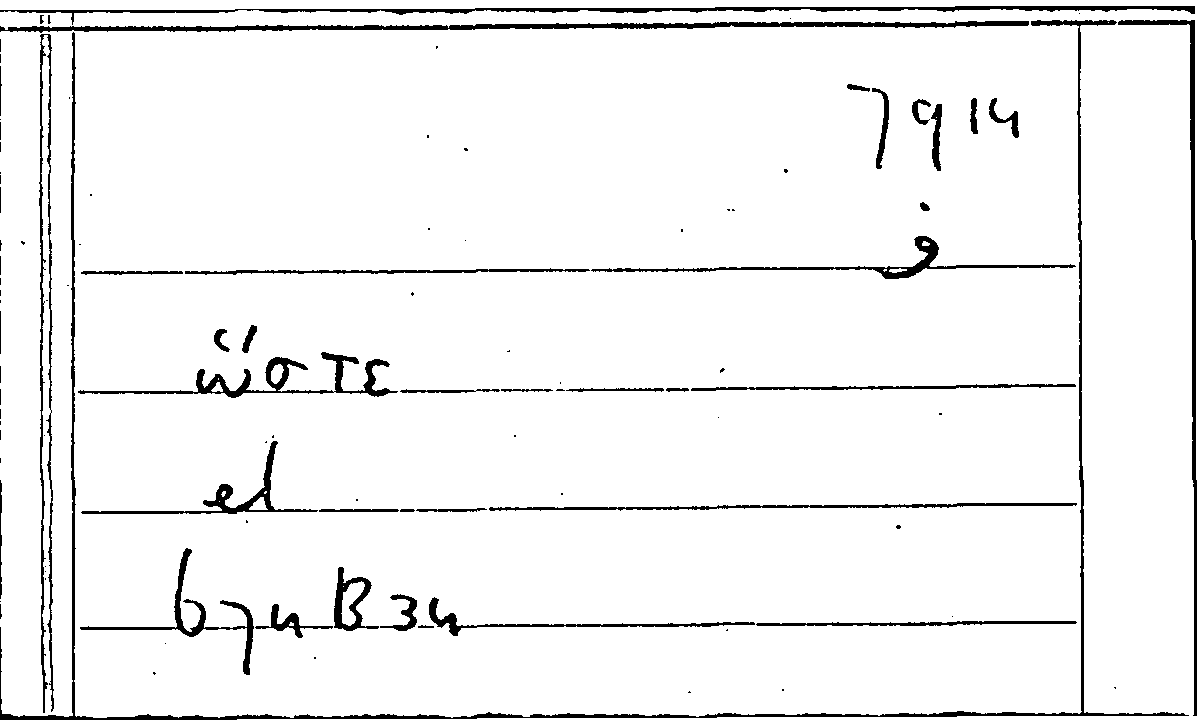 79 14
ف
ὥστε
el
674 B 34